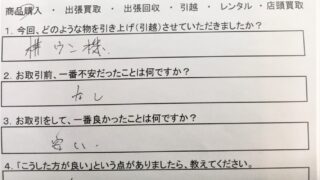 商品購入 ・ 出張買取 ・ 出張回収 ・ 引越 ・ レンタル ・ 店頭買取
1. 今回、どのような物を引き上げ(引越)させていただきましたか?
耕ウン機
2. お取引前、一番不安だったことは何ですか?
なし
3. お取引をして、一番良かったことは何ですか?
4. 「こうした方が良い」という点がありましたら、教えてください。